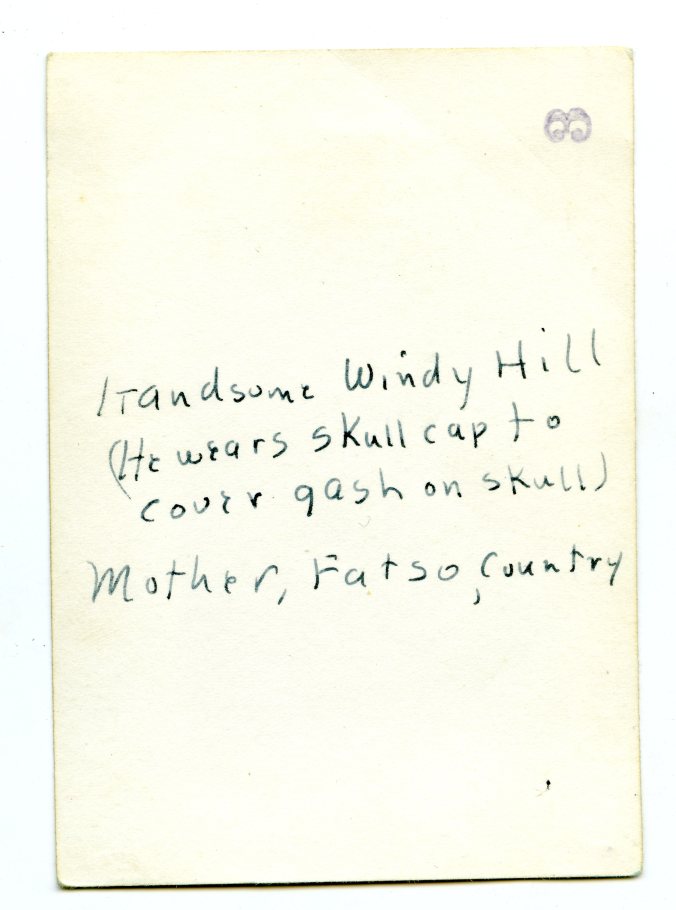 Handsome Windy Hill
(He wears skull cap to
cover gash on skull)
Mother, Fatso, Country